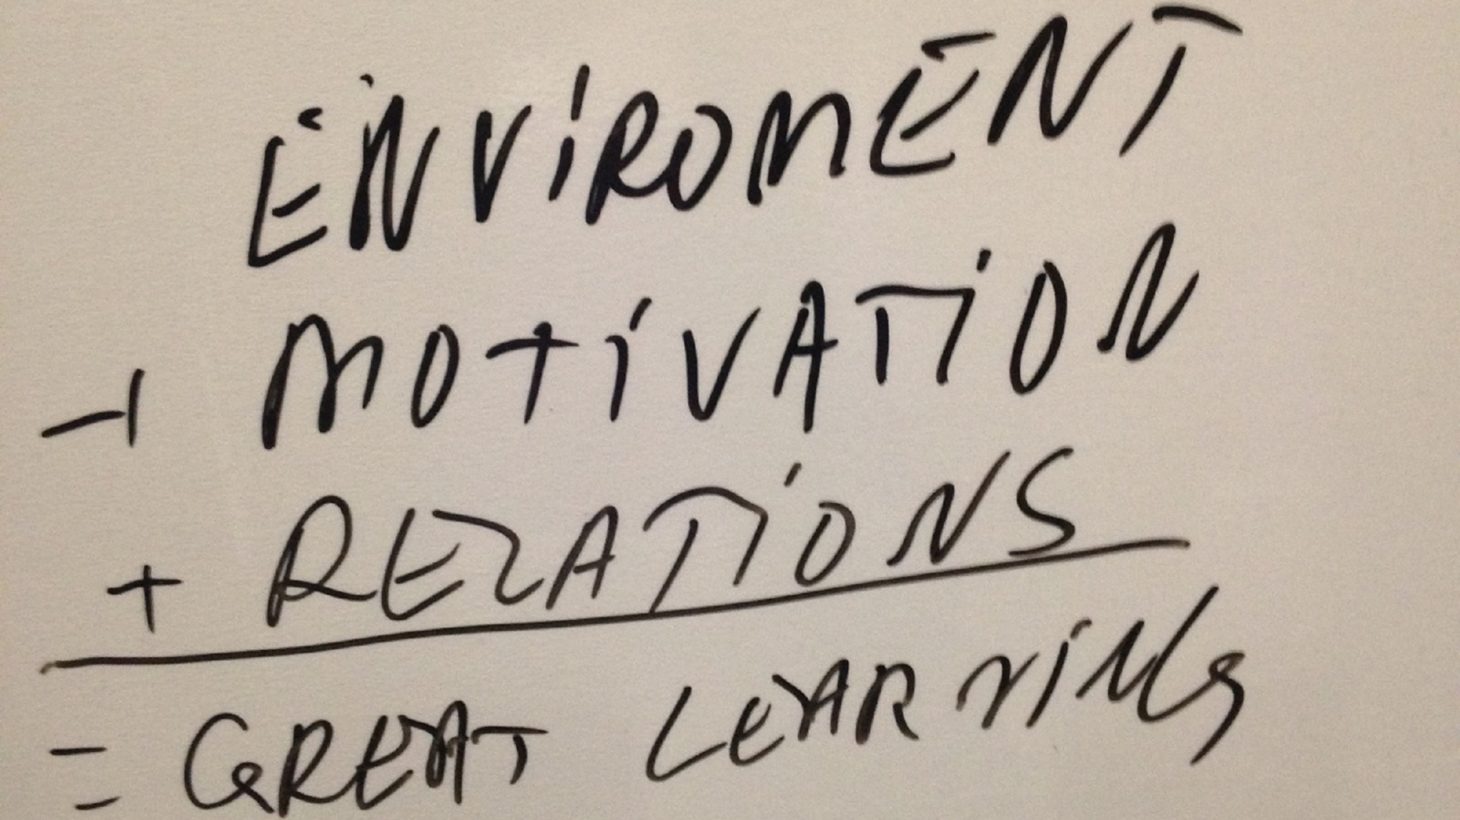 ENViROMENT
+ MOTiVATiON
+ RELATiONS
= GREAT LEARNiNG